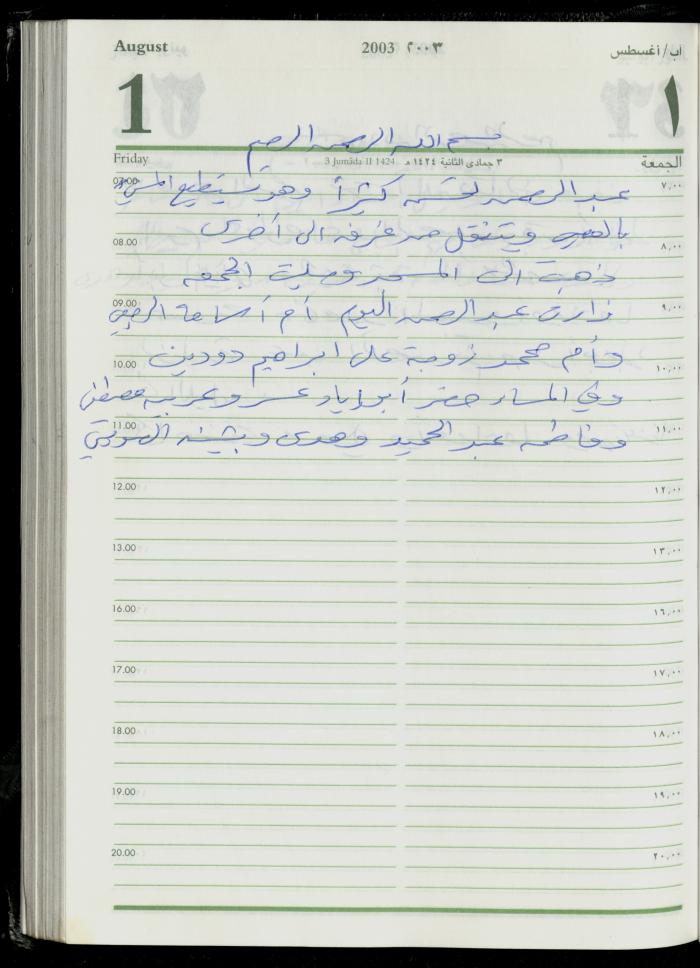 August 2003 ٢٠٠٣ آب/أغسطس
1 ١
بسم الله الرحمن الرحيم
Friday 3 Jumâda II 1424 ٣ جمادى الثانية ١٤٢٤ هـ الجمعة
07.00 عبد الرحمن تحسن كثيراً وهو يستطيع المشي ٧,٠٠
ويتنقل من غرفه الى أخرى
08.00 ٨,٠٠
ذهبت الى المسجد وصليت الجمعه
09.00 زارت عبد الرحمن اليوم أم أسامة ٩,٠٠
وأم محمد زوجة علي ابراهيم دودين
10.00 ١٠,٠٠
وفي المساء حضر أبو زياد عمر وعربيه مصطفى
11.00 وفاطمه عبد الحميد وهدى وبثينه ١١,٠٠
12.00 ١٢,٠٠
13.00 ١٣,٠٠
16.00 ١٦,٠٠
17.00 ١٧,٠٠
18.00 ١٨,٠٠
19.00 ١٩,٠٠
20.00 ٢٠,٠٠